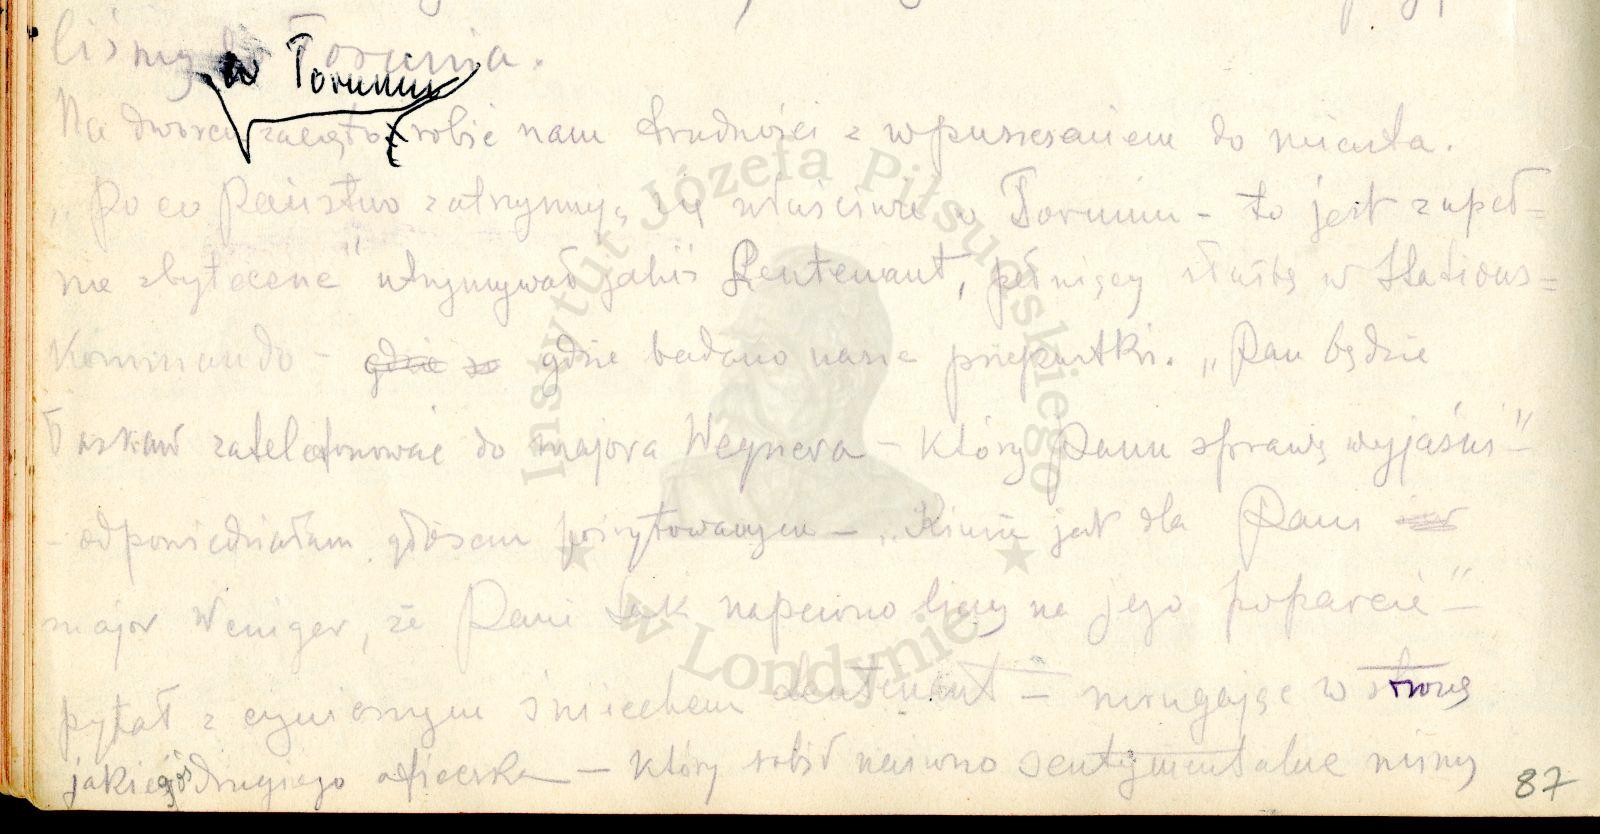 liśmy do Torunia.
w Toruniu
Na dworcu zaczęto robić nam trudności z wpuszczaniem do miasta.
„Po co Państwo zatrzymują się właściwie w Toruniu – to jest zupeł=
nie zbyteczne" utrzymywał jakiś Leutenant, pełniący służbę w Stations=
Kommando – gdzie badano nasze przepustki. „Pan będzie
łaskaw zatelefonować do majora Wegnera – który Panu sprawę wyjaśni"
– odpowiedziałam głosem poirytowanym – „Kimże jest dla Pani
major Weniger, że Pani tak napewno liczy na jego poparcie" –
pytał z cynicznym śmiechem Leutenant – mrugając w stronę
jakiegoś drugiego oficerka – który robił naiwno sentymentalne miny
87
Instytut Józefa Piłsudskiego
w Londynie